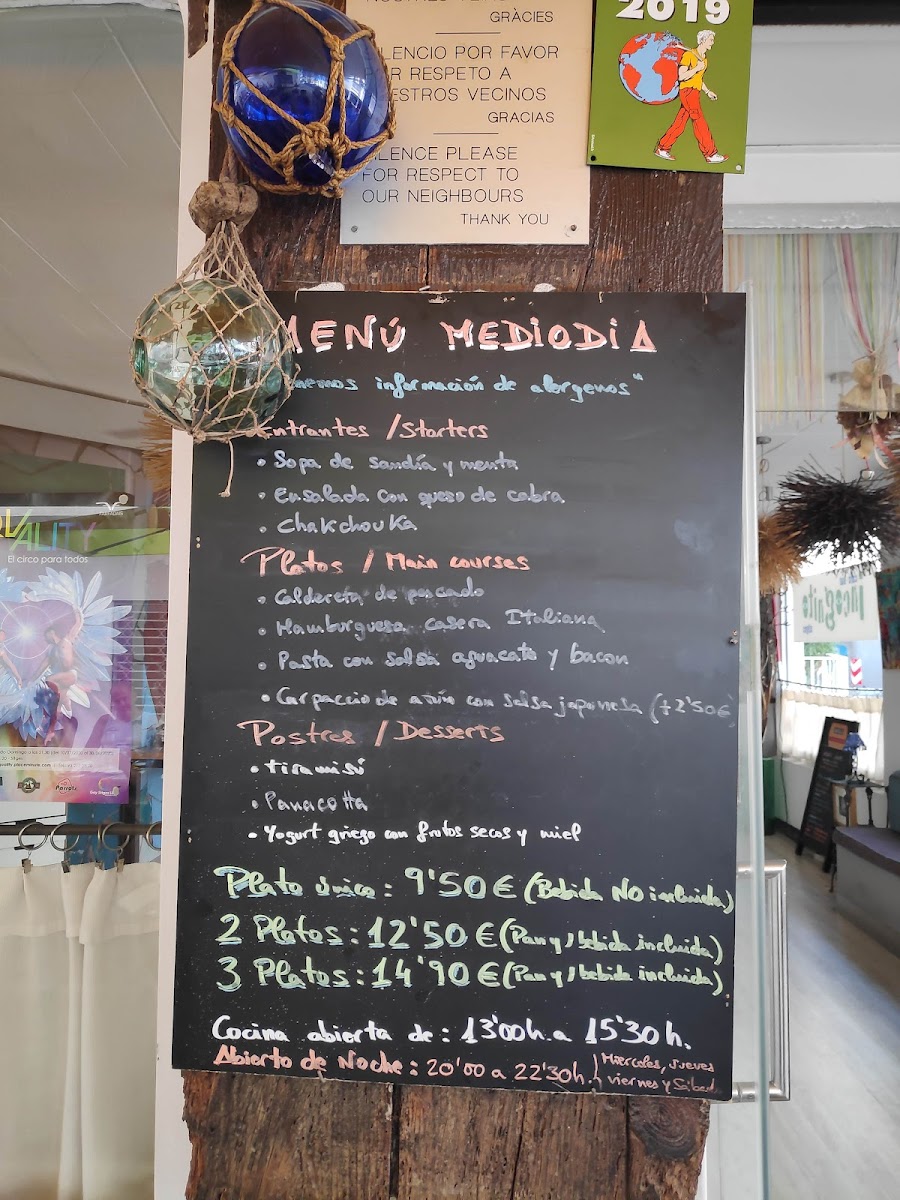 GRÀCIES
SILENCIO POR FAVOR
POR RESPETO A
NUESTROS VECINOS
GRACIAS
SILENCE PLEASE
FOR RESPECT TO
OUR NEIGHBOURS
THANK YOU
2019
MENÚ MEDIODIA
información de alergenos"
Entrantes / Starters
• Sopa de sandía y menta
• Ensalada con queso de cabra
• Chakchouka
Platos / Main courses
• Caldereta de pescado
• Hamburguesa casera Italiana
• Pasta con salsa aguacate y bacon
• Carpaccio de atún con salsa japonesa (+2'50€)
Postres / Desserts
• tiramisú
• Panacotta
• Yogurt griego con frutos secos y miel
Plato único: 9'50€ (Bebida NO incluida)
2 Platos: 12'50€ (Pan y 1 bebida incluida)
3 Platos: 14'90€ (Pan y 1 bebida incluida)
Cocina abierta de: 13'00h. a 15'30h.
Abierto de Noche: 20'00 a 22'30h. / Miercoles, Jueves
viernes y Sábad
VALITY
El circo para todos
Incognito